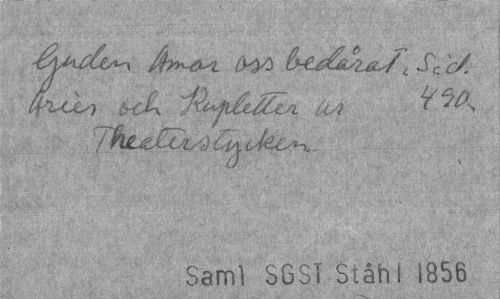 Guden Amor oss bedårat. Sid.
Arier och Kupletter ur 490.
Theaterstycken.
Saml SGST Ståhl 1856